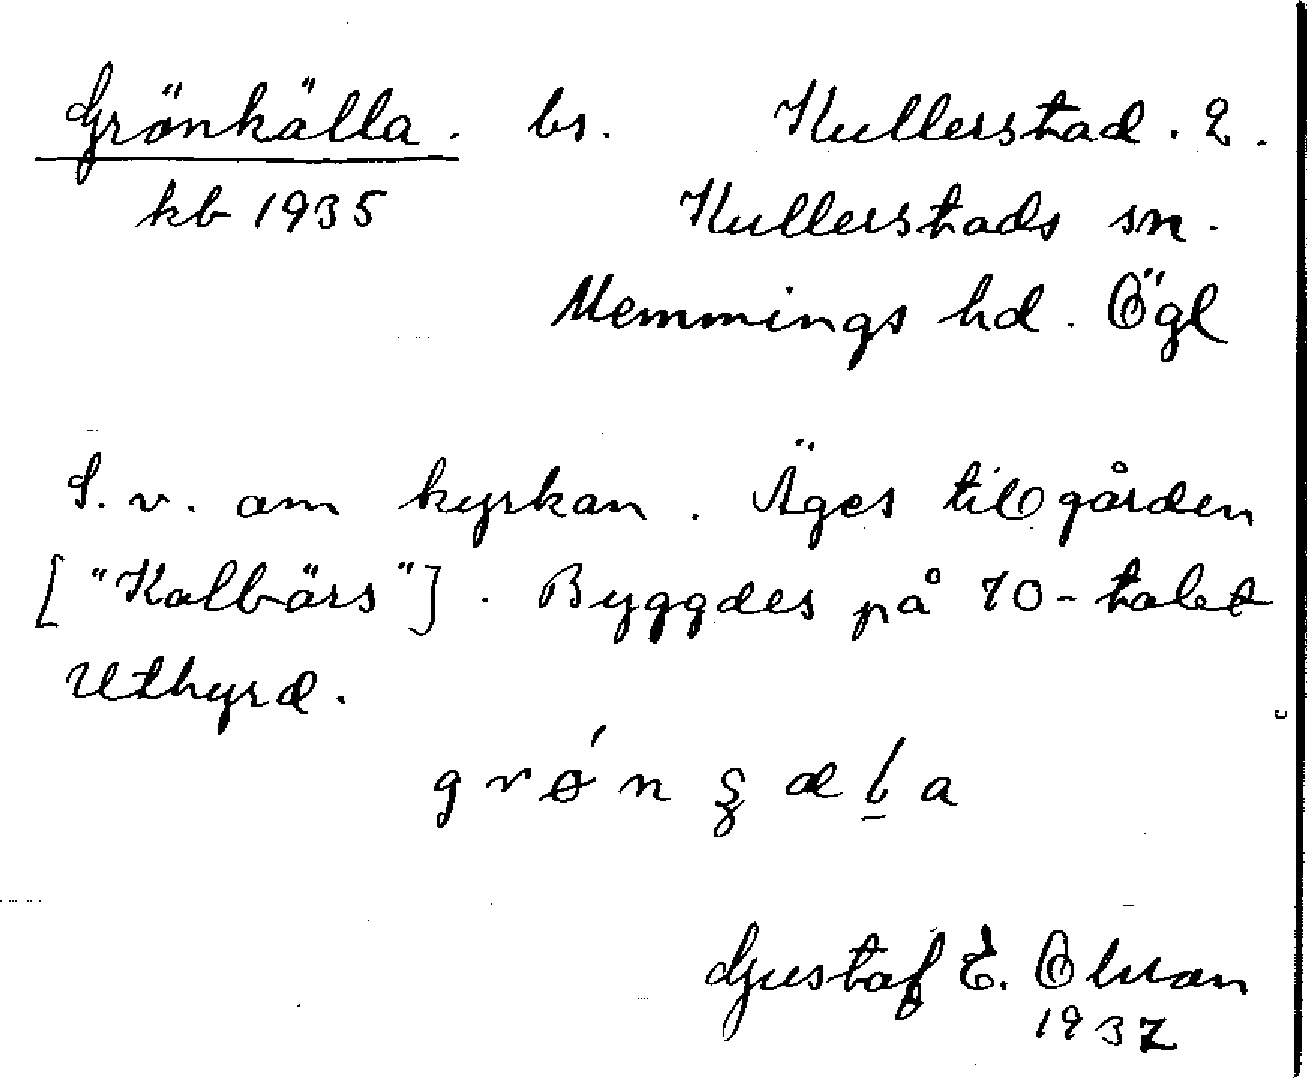 Grönkälla. bs. Kullerstad. 2.
kb 1935 Kullerstads sn.
Memmings hd. Ögl
S. v. om kyrkan. Äges till gården
["Kalbärs"]. Byggdes på 70-talet
Uthyrd.
Gustaf E. Olsson
1937